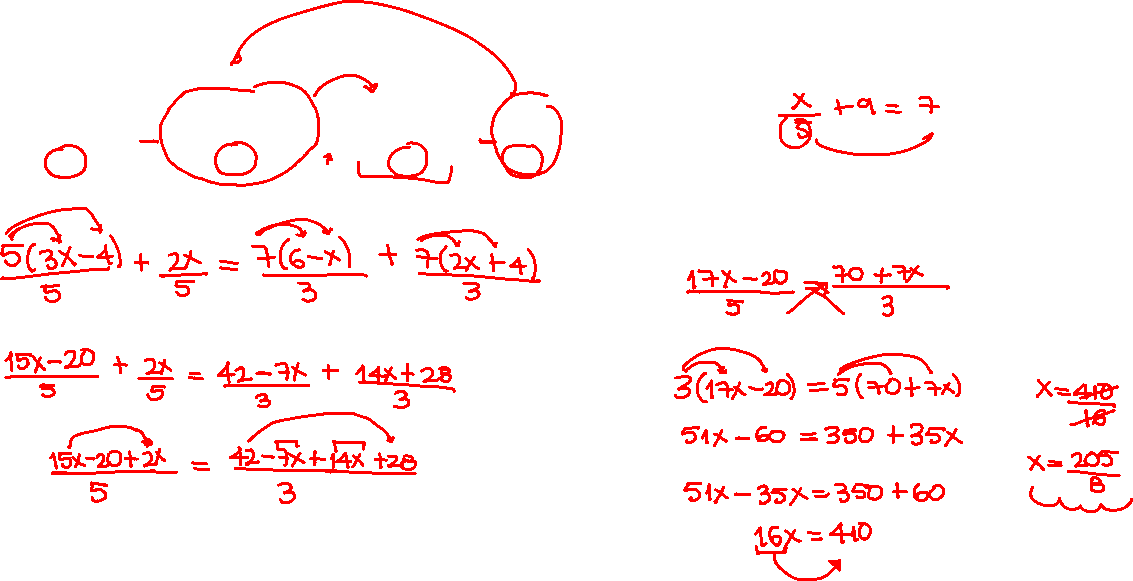 x/5 + 9 = 7
5(3x-4)/5 + 2x/5 = 7(6-x)/3 + 7(2x+4)/3
15x-20/5 + 2x/5 = 42-7x/3 + 14x+28/3
15x-20+2x/5 = 42-7x+14x+28/3
17x-20/5 = 70+7x/3
3(17x-20) = 5(70+7x)
51x-60 = 350+35x
51x-35x = 350+60
16x = 410
x = 410/16
x = 205/8